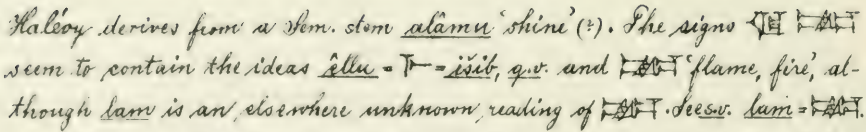 Halévy derives from a Sem. stem alâmu 'shine' (?). The signs
seem to contain the ideas êllu = = išib, q.v. and 'flame, fire', al-
though lam is an elsewhere unknown reading of . See s.v. lam =